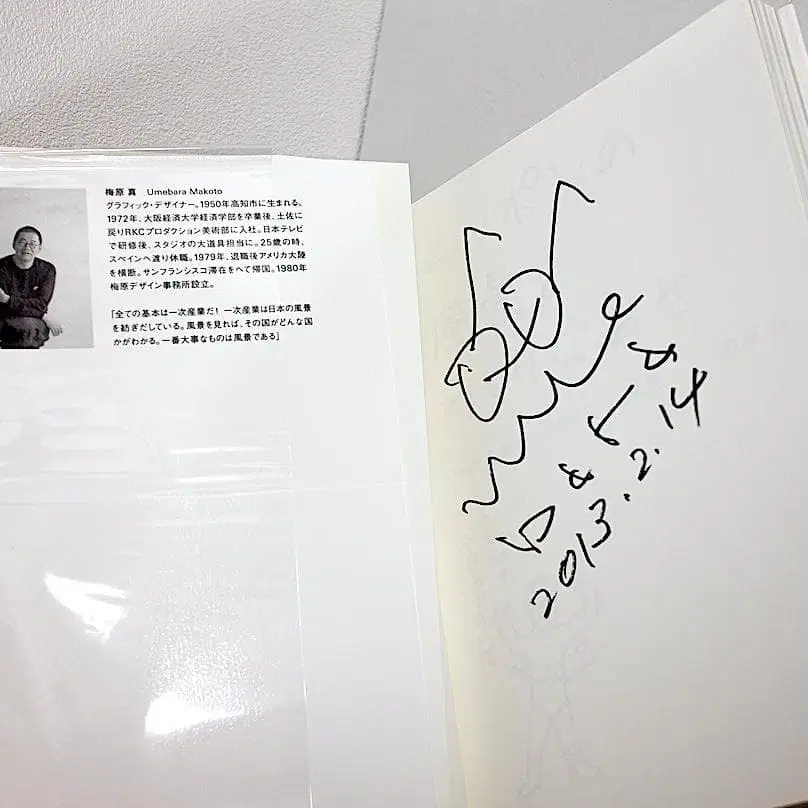 梅原 真 Umebara Makoto
グラフィック・デザイナー。1950年高知市に生まれる。
1972年、大阪経済大学経済学部を卒業後、土佐に
戻りRKCプロダクション美術部に入社。日本テレビ
で研修後、スタジオの大道具担当に。25歳の時、
スペインへ渡り休職。1979年、退職後アメリカ大陸
を横断。サンフランシスコ滞在をへて帰国。1980年
梅原デザイン事務所設立。
「全ての基本は一次産業だ! 一次産業は日本の風景
を紡ぎだしている。風景を見れば、その国がどんな国
かがわかる。一番大事なものは風景である」
2013.2.14